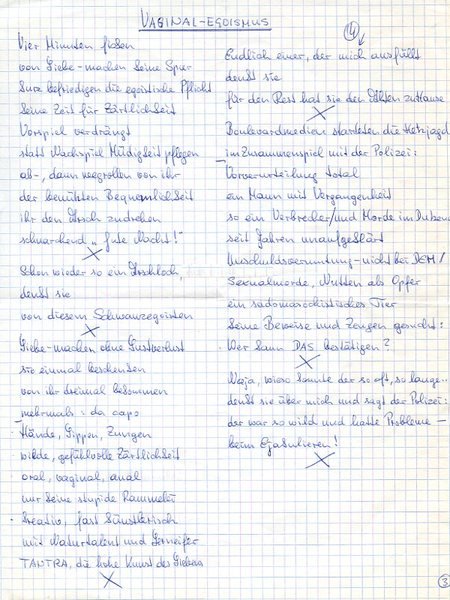 VAGINAL-EGOISMUS
Vier Minuten
von Liebe-machen keine Spur
Pure befriedigen die egoistische Pflicht
keine Zeit für Zärtlichkeit
Vorspiel verdrängt
statt Nachspiel Müdigkeit pflegen
ab-, dann wegrollen von ihr
der benützten Bequemlichkeit
ihr den Arsch zudrehen
schnarchend „Gute Nacht!"
X
Schon wieder so ein Arschloch,
denkt sie
von diesem Schwanzegoisten
X
Liebe-machen ohne Lustverlust
sie einmal beschenken
von ihr dreimal bekommen
mehrmals: da capo
Hände, Lippen, Zungen
wilde, gefühlvolle Zärtlichkeit
oral, vaginal, anal
nur keine stupide Rammelei
Kreativ, fast künstlerisch
mit Naturtalent und Lerneifer
TANTRA, die hohe Kunst des Liebens
X
14
Endlich einer, der mich ausfüllt
denkt sie
für den Rest hat sie den Alten zuHause
X
Boulevardmedien starteten die Hetzjagd
im Zusammenspiel mit der Polizei:
Vorverurteilung total
ein Mann mit Vergangenheit
so ein Verbrecher/und Morde im Dutzend
seit Jahren unaufgeklärt
Unschuldsvermutung-nicht bei DEM/
Sexualmorde, Nutten als Opfer
ein sadomasochistisches Tier
keine Beweise und Zeugen gesucht:
Wer kann DAS bestätigen?
X
Naja, wieso konnte der so oft, so lange..
denkt sie über mich und sagt der Polizei:
der war so wild und hatte Probleme-
beim Ejakulieren!
X
3